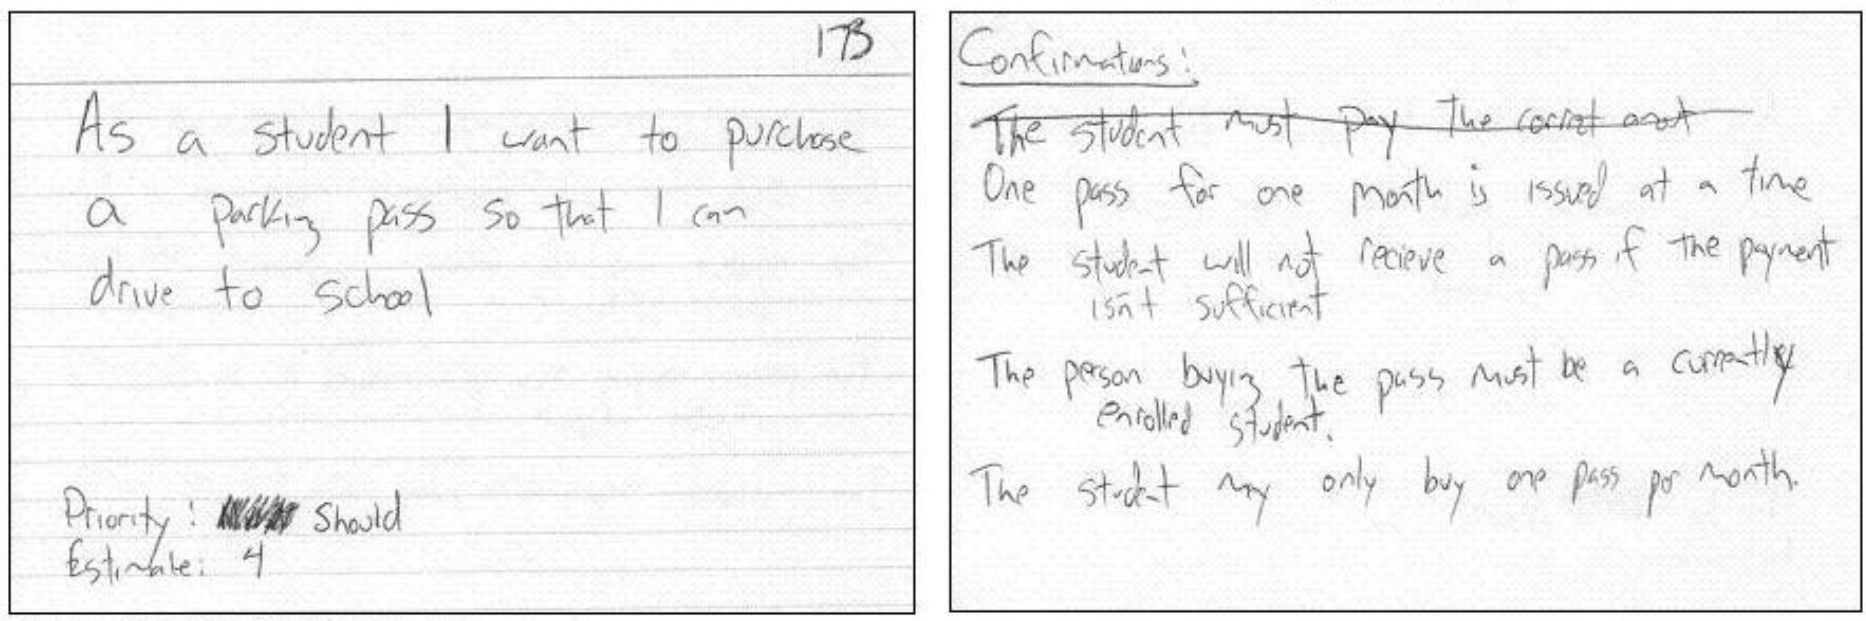 173
As a student I want to purchase
a parking pass so that I can
drive to school
Priority: Should
Estimate: 4
Confirmations:
The student must pay the corret amot
One pass for one month is issued at a time
The student will not recieve a pass if the payment
isn't sufficient
The person buying the pass must be a currently
enrolled student.
The student may only buy one pass per month.